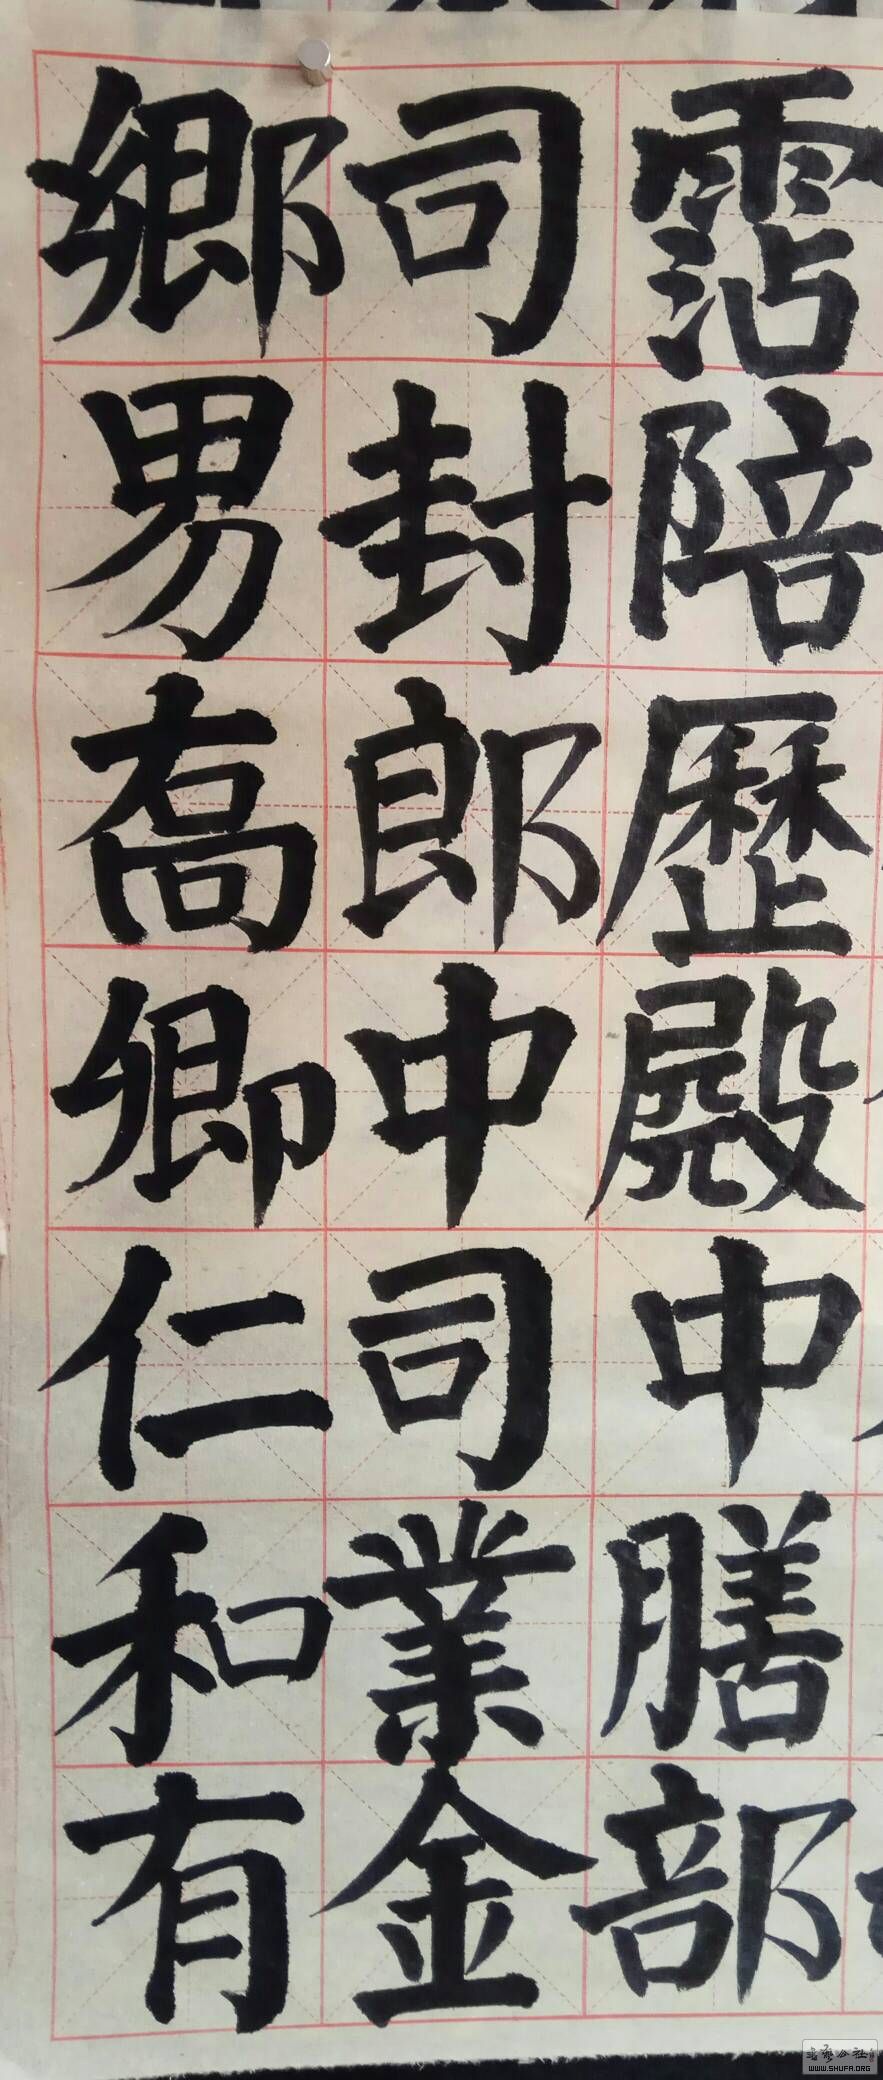 霑陪歷殿中膳部
司封郎中司業金
鄉男喬卿仁和有
WWW.SHUFA.ORG